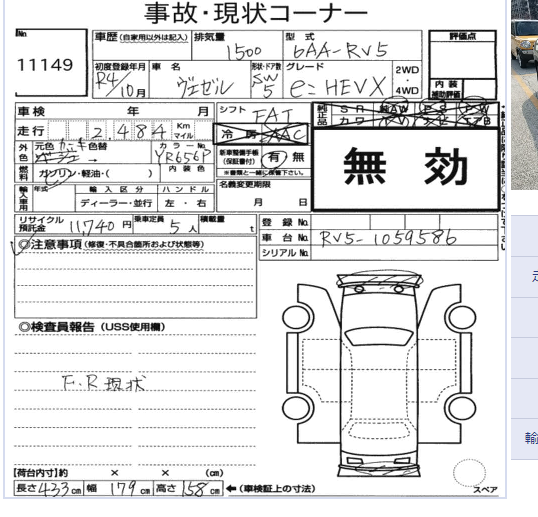 事故・現状コーナー
No. 11149
車歴 (自家用以外は記入) 排気量 1500 型式 6AA-RV5 評価点
初度登録年月 R4/10月 車名 ヴェゼル 形状・ドア数 SW 5 グレード e:HEVX 2WD・4WD 内装補助評価
車検 年 月 シフト FAT 純正品
走行 2,484 Km マイル 冷房 AAC
外色 元色 色替 カラーNo. YR656P 内装色 新車整備手帳(保証書付) 有・無
※書類と一緒に保管下さい。
燃料 ガソリン・軽油・( ) 無効
輸入車用 年式 輸入区分 ハンドル 名義変更期限
ディーラー・並行 左・右 月 日
リサイクル預託金 11,740円 乗車定員 5人 積載量 t 登録No.
車台No. RV5-1059586
シリアルNo.
◎注意事項 (修復・不具合箇所および状態等)
◎検査員報告 (USS使用欄)
F.R現状
【荷台内寸】約 × × (cm)
長さ433cm 幅179cm 高さ158cm ←(車検証上の寸法) スペア
走
輸